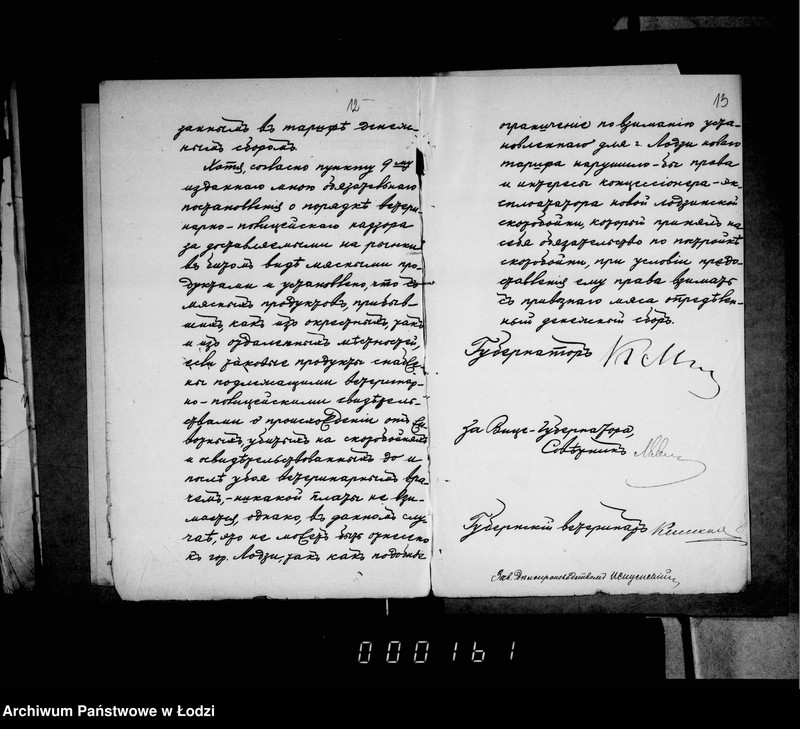 12
заннымъ въ тарифѣ денеж-
нымъ сборомъ.
Хотя, согласно пункту 9му
изданнаго мною обязательнаго
постановленія о порядкѣ ветери-
нарно-полицейскаго надзора
за доставляемыми на рынки
въ битомъ видѣ мясными про-
дуктами и установлено, что съ
мясныхъ продуктовъ, прибыв-
шихъ какъ изъ окрестныхъ, такъ
и изъ отдаленныхъ мѣстностей,
если таковые продукты снабже-
ны подлежащими ветеринар-
но-полицейскими свидѣтель-
ствами о происхожденіи отъ жи-
вотныхъ, убитыхъ на скотобойняхъ
и освидѣтельствованныхъ до и
послѣ убоя ветеринарнымъ вра-
чемъ, - никакой платы не взи-
мается, однако, въ данномъ слу-
чаѣ, это не можетъ быть отнесено
къ гор. Лодзи, такъ какъ подобное
13
ограниченіе по взиманію уста-
новленнаго для г. Лодзи новаго
тарифа нарушило-бы права
и интересы концессіонера-эк-
сплоататора новой лодзинской
скотобойни, который принялъ на
себя обязательство по постройкѣ
скотобойни, при условіи предо-
ставленія ему права взимать
съ привознаго мяса опредѣлен-
ный денежный сборъ.
Губернаторъ
за Вице-Губернатора,
Совѣтникъ
Губернскій ветеринаръ
Зав. Дѣлопроизводствомъ
0000161
Archiwum Państwowe w Łodzi